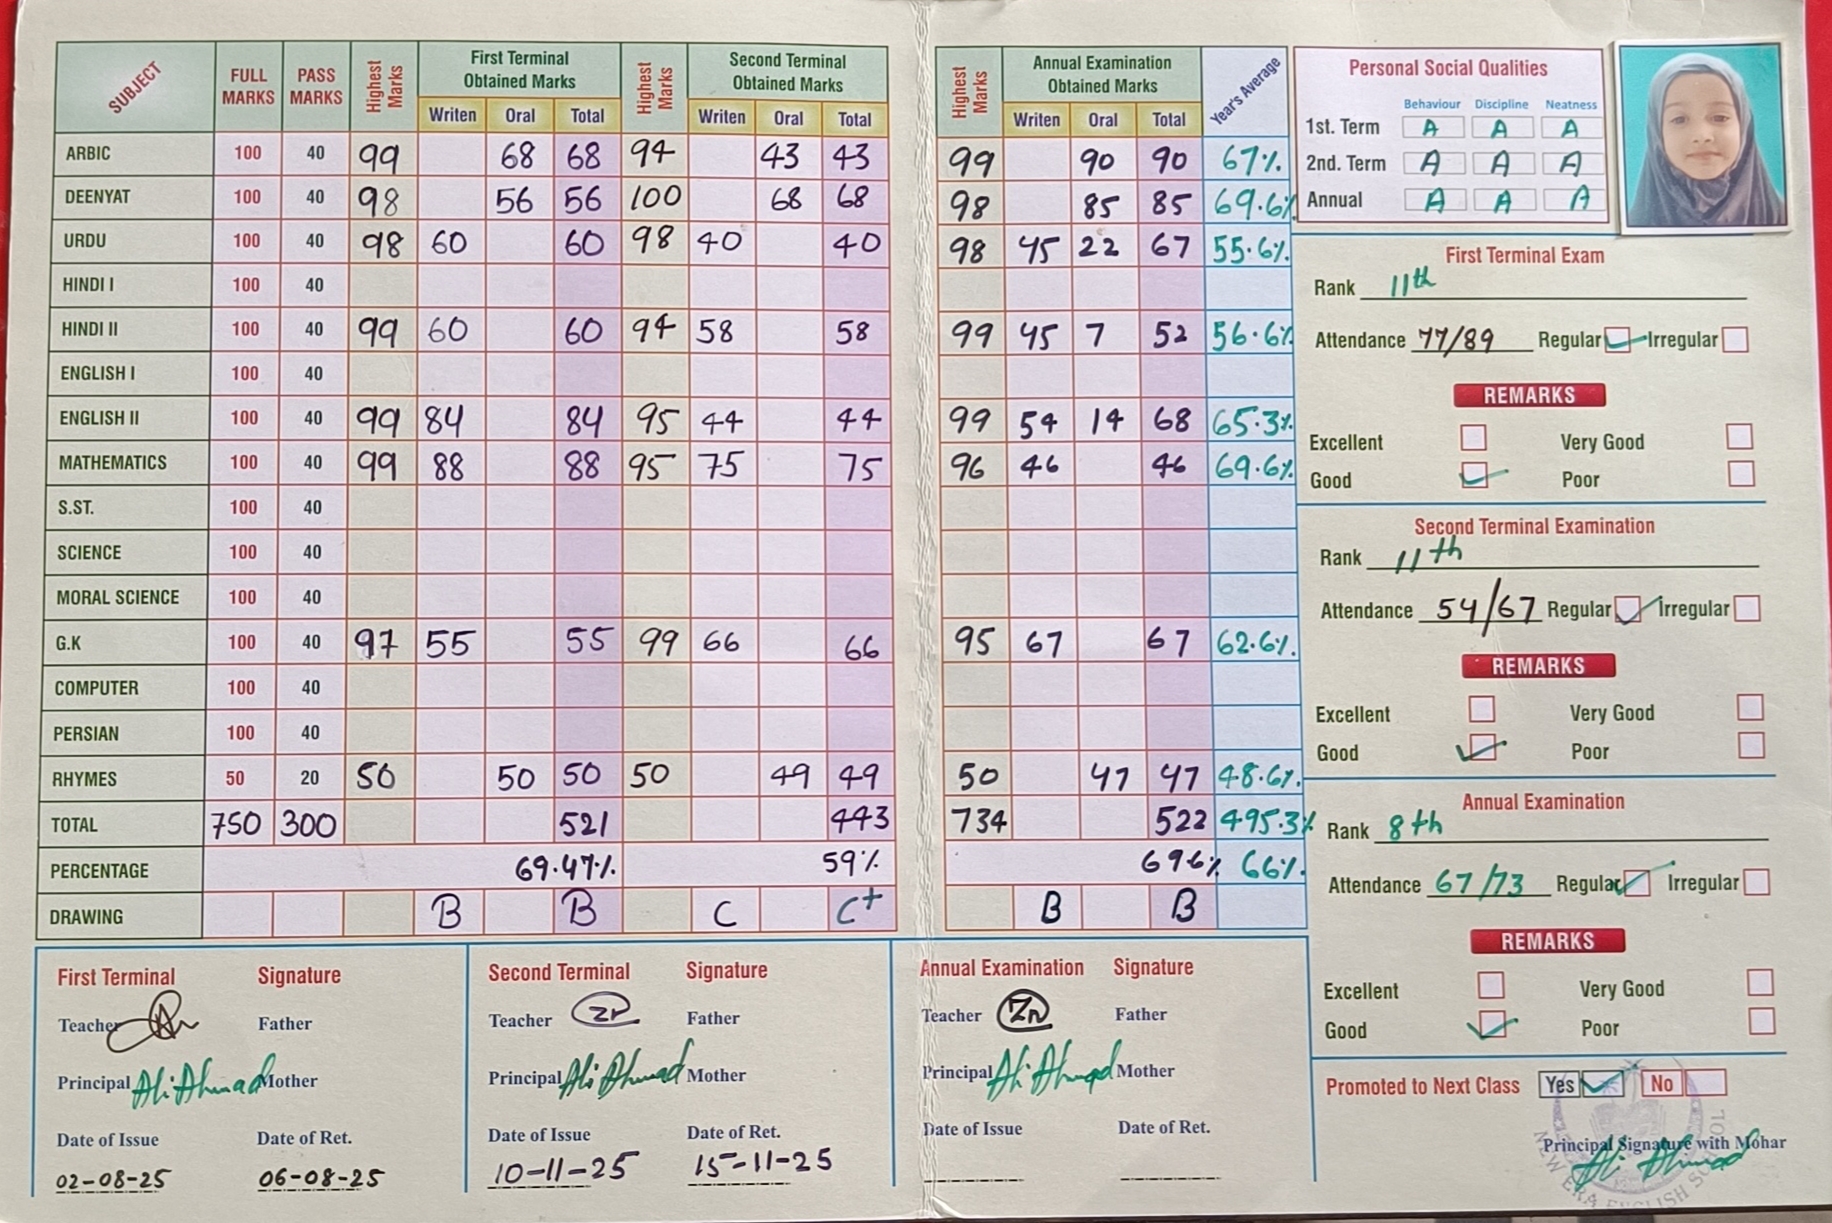 SUBJECT FULL MARKS PASS MARKS Highest Marks First Terminal Obtained Marks Highest Marks Second Terminal Obtained Marks Highest Marks Annual Examination Obtained Marks Year's Average
Writen Oral Total Writen Oral Total Writen Oral Total
ARBIC 100 40 99 68 68 94 43 43 99 90 90 67%
DEENYAT 100 40 98 56 56 100 68 68 98 85 85 69.6%
URDU 100 40 98 60 60 98 40 40 98 45 22 67 55.6%
HINDI I 100 40
HINDI II 100 40 99 60 60 94 58 58 99 45 7 52 56.6%
ENGLISH I 100 40
ENGLISH II 100 40 99 84 84 95 44 44 99 54 14 68 65.3%
MATHEMATICS 100 40 99 88 88 95 75 75 96 46 46 69.6%
S.ST. 100 40
SCIENCE 100 40
MORAL SCIENCE 100 40
G.K 100 40 97 55 55 99 66 66 95 67 67 62.6%
COMPUTER 100 40
PERSIAN 100 40
RHYMES 50 20 50 50 50 50 49 49 50 47 47 48.6%
TOTAL 750 300 521 443 734 522 495.3%
PERCENTAGE 69.47% 59% 696% 66%
DRAWING B B C C+ B B
Personal Social Qualities
Behaviour Discipline Neatness
1st. Term A A A
2nd. Term A A A
Annual A A A
First Terminal Exam
Rank 11th
Attendance 77/89 Regular Irregular
REMARKS
Excellent Very Good
Good Poor
Second Terminal Examination
Rank 11th
Attendance 54/67 Regular Irregular
REMARKS
Excellent Very Good
Good Poor
Annual Examination
Rank 8th
Attendance 67/73 Regular Irregular
REMARKS
Excellent Very Good
Good Poor
Promoted to Next Class Yes No
Principal Signature with Mohar
Ali Ahmad
NEW ERA ENGLISH SCHOOL
First Terminal Signature
Teacher Father
Principal Ali Ahmad Mother
Date of Issue Date of Ret.
02-08-25 06-08-25
Second Terminal Signature
Teacher Father
Principal Ali Ahmad Mother
Date of Issue Date of Ret.
10-11-25 15-11-25
Annual Examination Signature
Teacher Father
Principal Ali Ahmad Mother
Date of Issue Date of Ret.